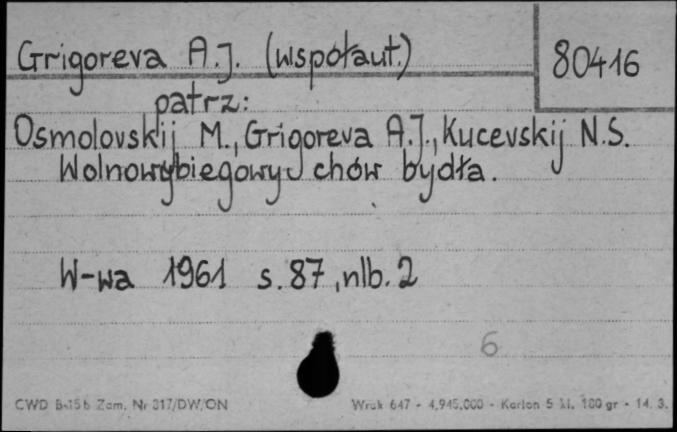 Grigoreva A.J. (współaut.)
80416
patrz:
Osmolovskij M., Grigoreva A.J., Kucevskij N.S.
Wolnowybiegowy chów bydła.
W-wa 1961 s. 87, nlb. 2
6
CWD B-15b Zam. Nr 317/DW/ON
Wrak 647 - 4,945,000 - Karton 5 kl. 180 gr - 14. 3.